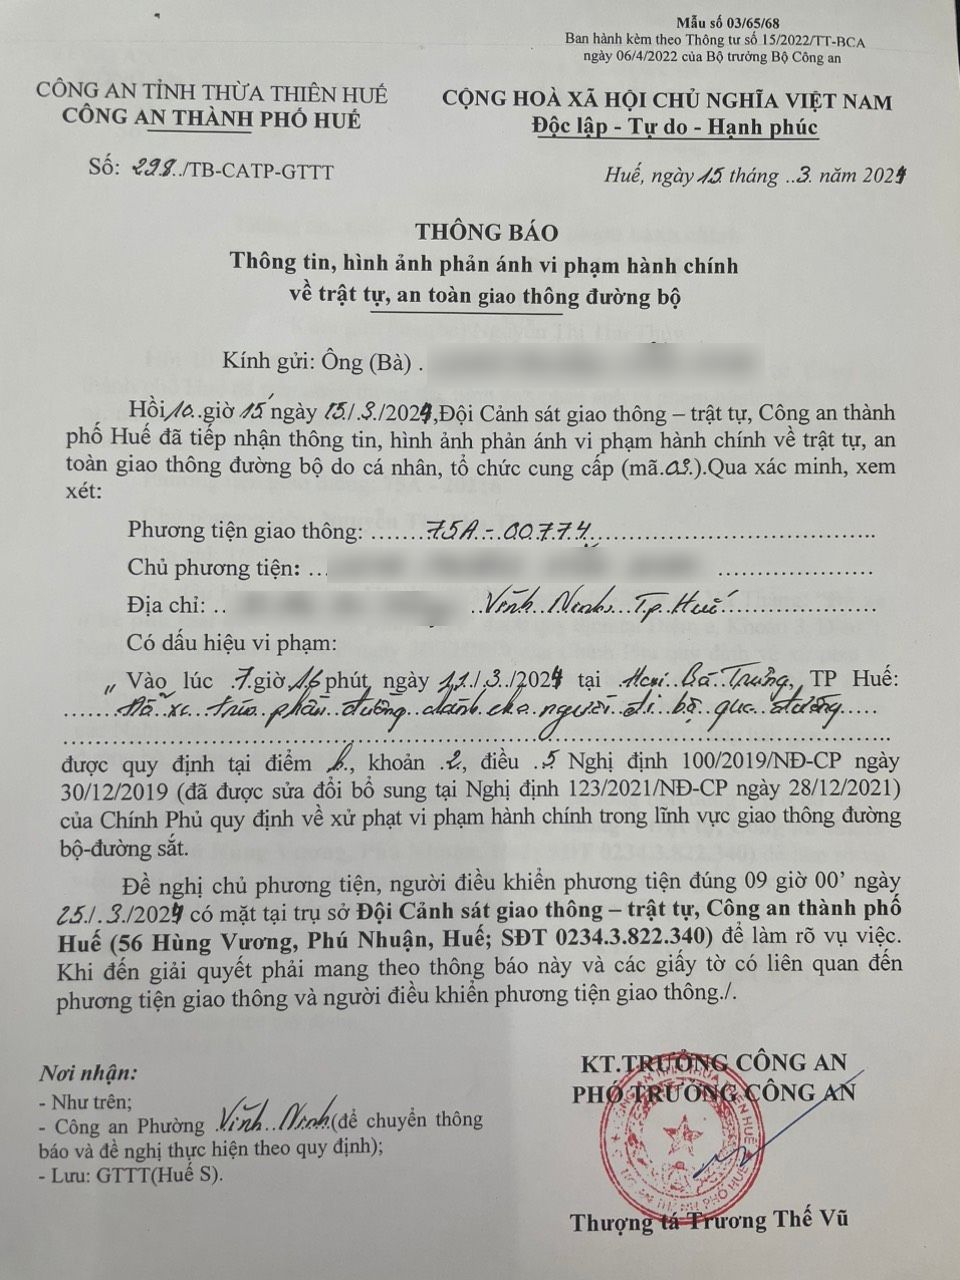 Mẫu số 03/65/68
Ban hành kèm theo Thông tư số 15/2022/TT-BCA
ngày 06/4/2022 của Bộ trưởng Bộ Công an
CÔNG AN TỈNH THỪA THIÊN HUẾ
CÔNG AN THÀNH PHỐ HUẾ
CỘNG HOÀ XÃ HỘI CHỦ NGHĨA VIỆT NAM
Độc lập - Tự do - Hạnh phúc
Số: 298../TB-CATP-GTTT
Huế, ngày 15 tháng ..3. năm 2024
THÔNG BÁO
Thông tin, hình ảnh phản ánh vi phạm hành chính
về trật tự, an toàn giao thông đường bộ
Kính gửi: Ông (Bà) .
Hồi 10..giờ 15' ngày 15./.3./2024,Đội Cảnh sát giao thông – trật tự, Công an thành
phố Huế đã tiếp nhận thông tin, hình ảnh phản ánh vi phạm hành chính về trật tự, an
toàn giao thông đường bộ do cá nhân, tổ chức cung cấp (mã.03.).Qua xác minh, xem
xét:
Phương tiện giao thông: .......75A.-.00774........................................
Chủ phương tiện: ... ......................
Địa chỉ: .. ..Vĩnh..Ninh..Tp.Huế......................
Có dấu hiệu vi phạm:
„ Vào lúc .7.giờ 16 phút, ngày 11./.3./2024 tại Hai Bà Trưng, TP Huế:
.......Đỗ xe trên phần đường dành cho người đi bộ qua đường.....
được quy định tại điểm b., khoản .2, điều .5 Nghị định 100/2019/NĐ-CP ngày
30/12/2019 (đã được sửa đổi bổ sung tại Nghị định 123/2021/NĐ-CP ngày 28/12/2021)
của Chính Phủ quy định về xử phạt vi phạm hành chính trong lĩnh vực giao thông đường
bộ-đường sắt.
Đề nghị chủ phương tiện, người điều khiển phương tiện đúng 09 giờ 00’ ngày
25./.3./2024 có mặt tại trụ sở Đội Cảnh sát giao thông – trật tự, Công an thành phố
Huế (56 Hùng Vương, Phú Nhuận, Huế; SĐT 0234.3.822.340) để làm rõ vụ việc.
Khi đến giải quyết phải mang theo thông báo này và các giấy tờ có liên quan đến
phương tiện giao thông và người điều khiển phương tiện giao thông./.
Nơi nhận:
- Như trên;
- Công an Phường Vĩnh..Ninh.(để chuyển thông
báo và đề nghị thực hiện theo quy định);
- Lưu: GTTT(Huế S).
KT.TRƯỞNG CÔNG AN
PHÓ TRƯỞNG CÔNG AN
Thượng tá Trương Thế Vũ